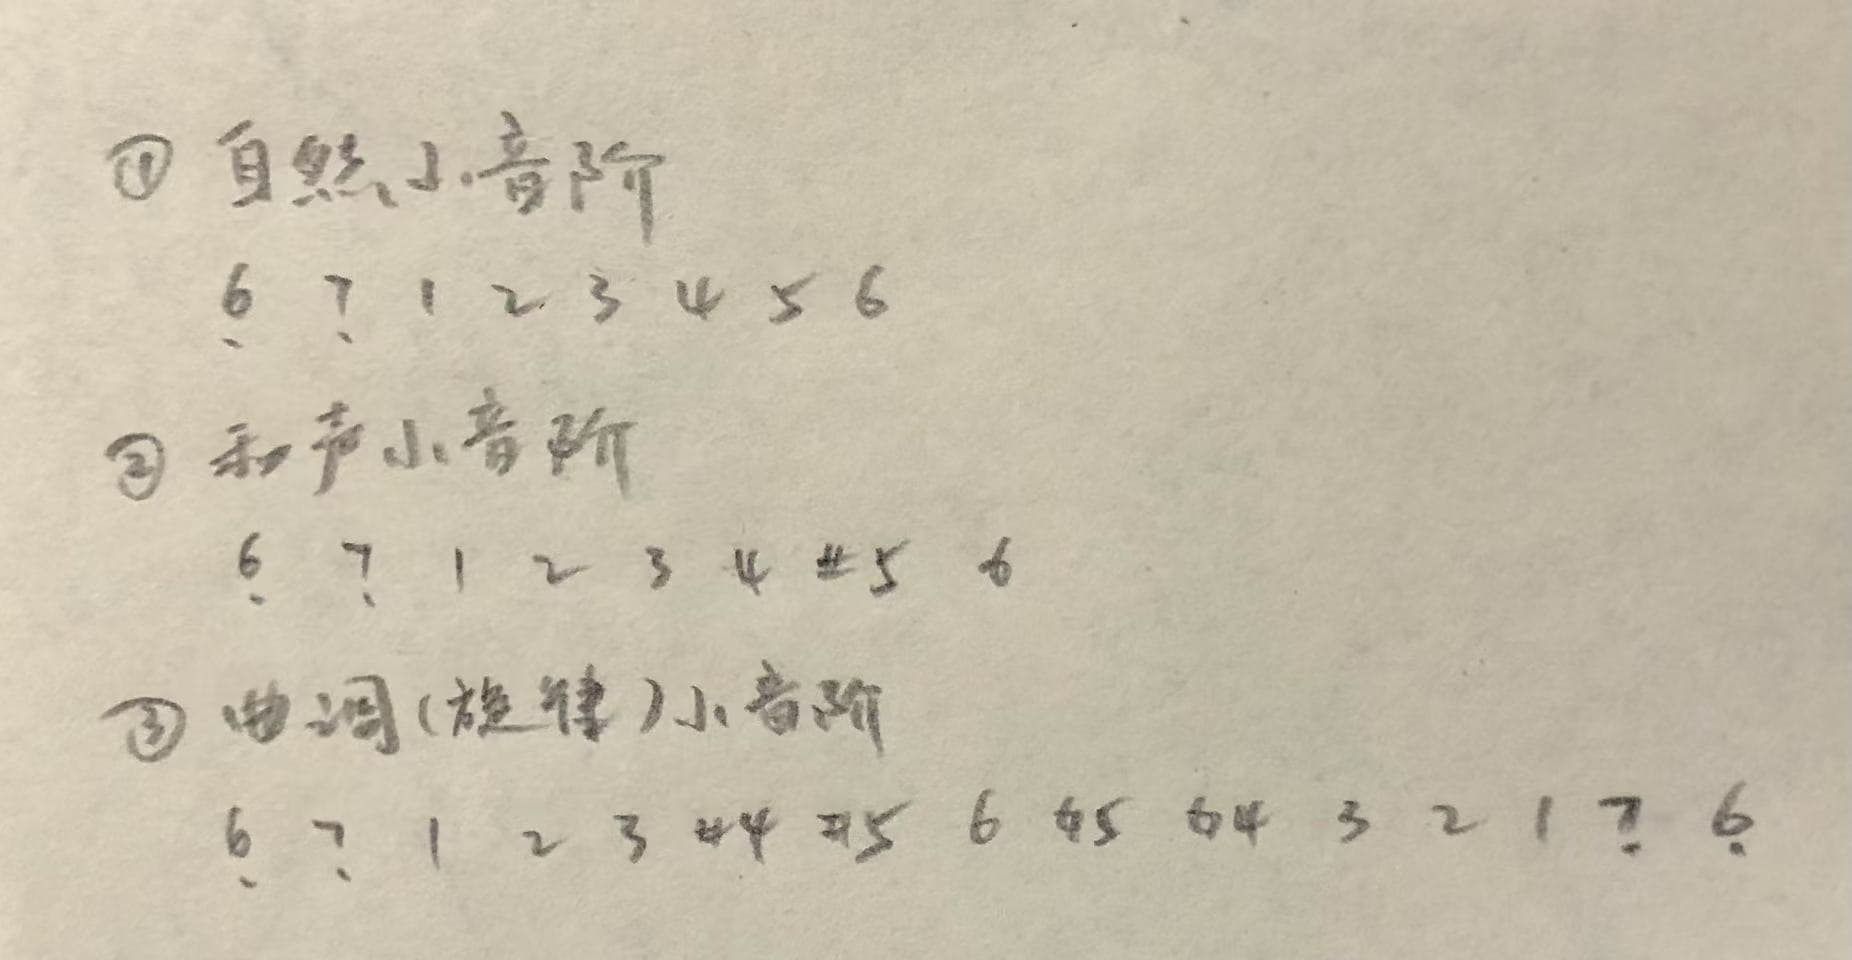 ① 自然小音阶
6̣ 7̣ 1 2 3 4 5 6
② 和声小音阶
6̣ 7̣ 1 2 3 4 #5 6
③ 曲调(旋律)小音阶
6̣ 7̣ 1 2 3 #4 #5 6 ♮5 ♮4 3 2 1 7̣ 6̣